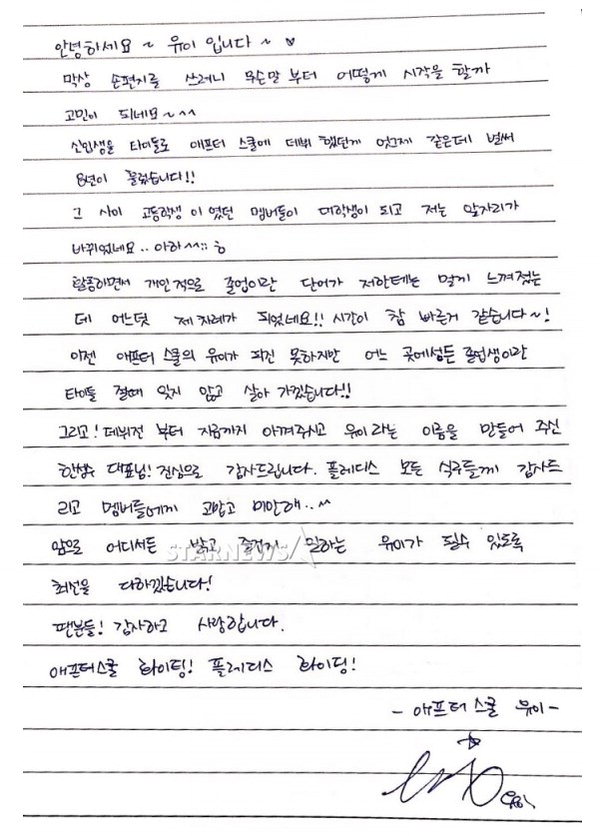 안녕하세요 ~ 유이 입니다 ~ ♥
막상 손편지를 쓰려니 무슨말 부터 어떻게 시작을 할까
고민이 되네요~^^
신인생을 타이틀로 애프터 스쿨에 데뷔 했던게 엊그제 같은데 벌써
8년이 흘렀습니다!!
그 사이 고등학생 이 였던 멤버들이 대학생이 되고 저는 앞자리가
바뀌었네요.. 아하^^;; ㅎ
활동하면서 개인적으로 졸업이란 단어가 저한테는 멀게 느껴졌는
데 어느덧 제 차례가 되었네요!! 시간이 참 빠른거 같습니다~!
이젠 애프터 스쿨의 유이가 되진 못하지만 어느 곳에성든 졸업생이란
타이틀 절때 잊지 않고 살아 가겠습니다!!
그리고! 데뷔전 부터 지금까지 아껴주시고 유이 라는 이름을 만들어 주신
한성수 대표님! 진심으로 감사드립니다. 플레디스 모든 식구들께 감사드
리고 멤버들에게 고맙고 미안해..^
앞으로 어디서든 밝고 즐겁게 일하는 유이가 될수 있도록
STARNEWS
최선을 다하겠습니다!
팬분들! 감사하고 사랑합니다.
애프터스쿨 화이팅! 플레디스 화이팅!
- 애프터 스쿨 유이 -